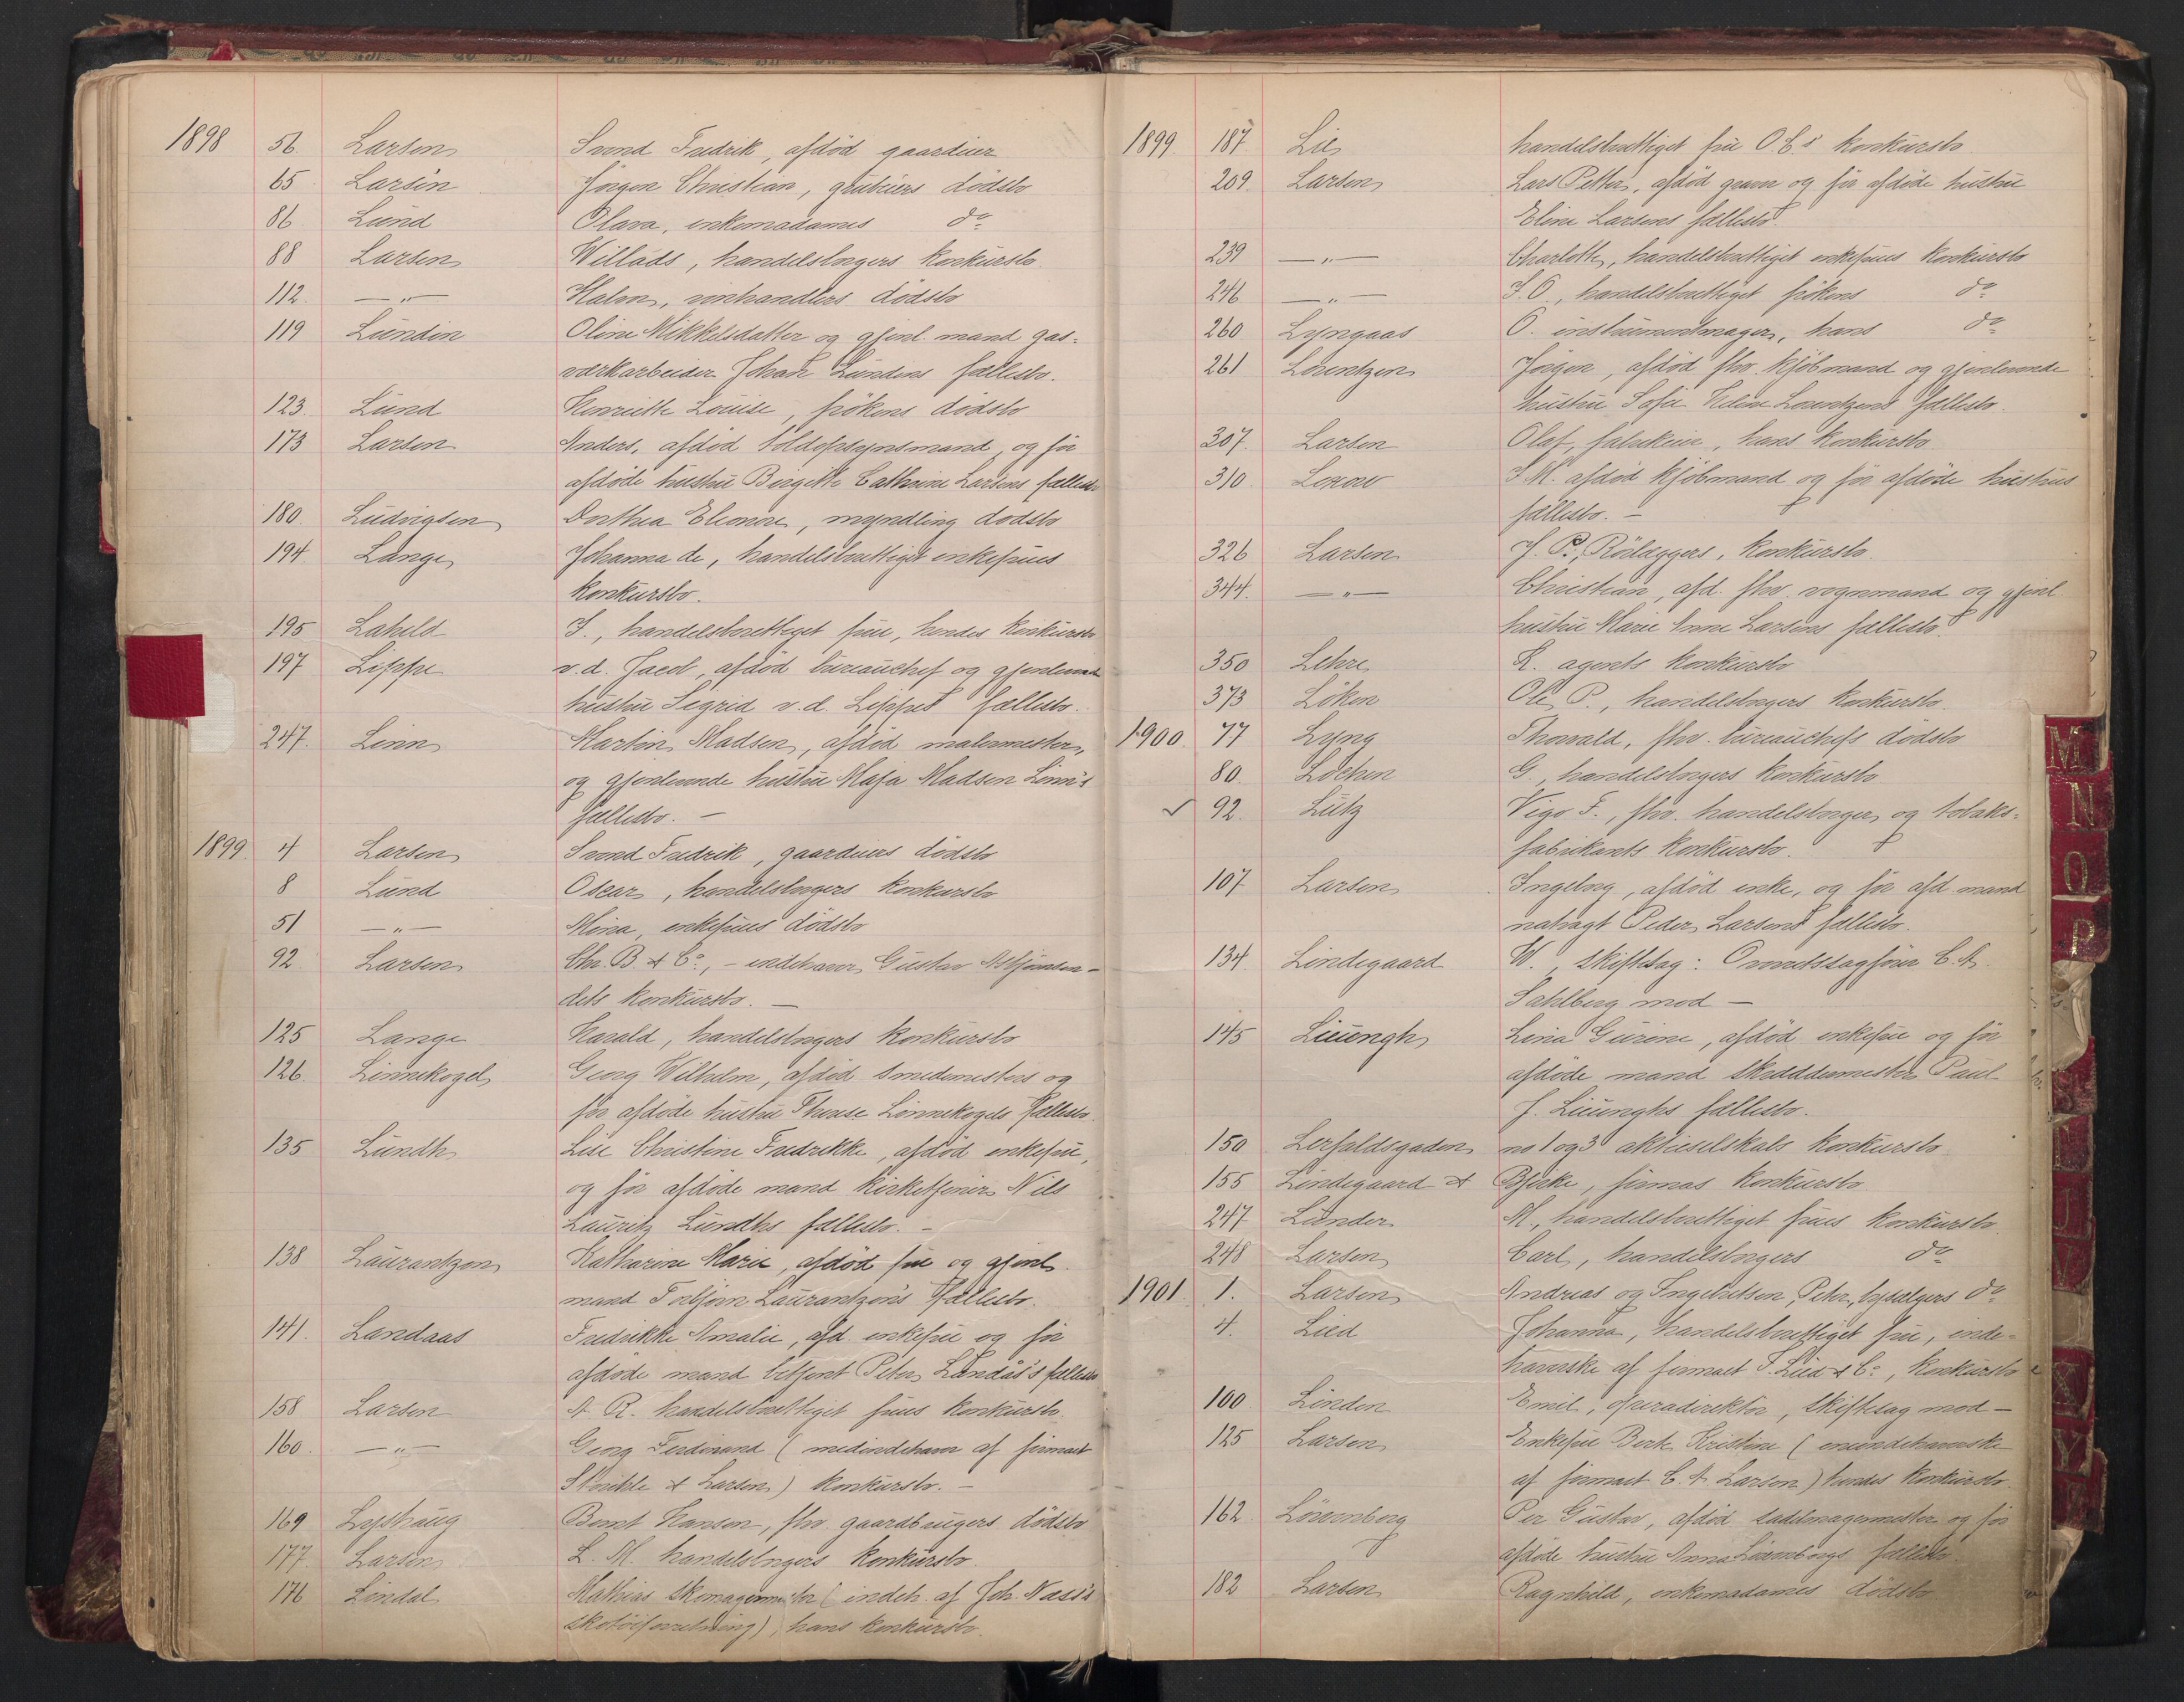 1898 56 Larsen Svend Fredrik, afdød gaardeier
65 Larsen Jörgen Christian, grubeiers dödsbo
86 Lund Olava, enkemadames do
88 Larsen Willads, handelsbrgers konkursbo
112 —"— Halvor, vinhandlers dödsbo
119 Lundin Oline Mikkelsdatter og gjenl. mand gas-
værkarbeider Johan Lundins fællesbo.
123 Lund Henriette Louise, frökens dödsbo
173 Larsen Anders, afdød toldopsynsmand, og før
afdöde hustru Birgitte Cathrine Larsens fællesbo
180 Ludvigsen Dorthea Eleonore, myndling dødsbo
194 Lange Johanna de, handelsberettiget enkefrues
konkursbo.
195 J., handelsberettiget frue, hendes konkursbo
197 Lippe v.d. Jacob, afdød bureauchef og gjenlevende
hustru Sigrid v.d. Lippes fællesbo.
247 Linn Martin Madsen, afdød malermester,
og gjenlevende hustru Maja Madsen Linn's
fællesbo. —
1899 4 Larsen Svend Fredrik, gaardeiers dödsbo
8 Lund Oscar, handelsbrgers konkursbo
51 —"— Mina, enkefrues dödsbo
92 Larsen Chr. B. & Co, - indehaver Gustav
dets konkursbo. —
125 Lange Harald, handelsbrgers konkursbo
126 Linnekogel Georg Wilhelm, afdød smedemesters og
før afdöde hustru Therese Linnekogels fællesbo.
135 Lundh Lise Christine Fredrikke, afdød enkefrue,
og før afdøde mand kirketjener Nils
Lauritz Lundhs fællesbo. —
138 Laurantzon Katharine Marie, afdød frue og gjenl.
mand Torbjørn Laurantzon's fællesbo.
141 Landaas Fredrikke Amalie, afd. enkefrue og før
afdøde mand betjent Peter Landås's fællesbo
158 Larsen A. R. handelsberettiget frues konkursbo.
160 —"— Georg Ferdinand (medindehaver af firmaet
& Larsen) konkursbo. —
169 Lysthaug Bernt Hansen, fhv. gaardbrugers dödsbo
177 Larsen L. M. handelsbrgers konkursbo.
176 Lindal Mathias skomagermester (indeh. af Joh. Næss's
skotöiforretning), hans konkursbo.
1899 187 Lie handelsberettiget frue O. E.s konkursbo
209 Larsen Lars Petter, afdød graver og før afdøde hustru
Eline Larsens fællesbo.
239 —"— Charlotte, handelsberettiget enkefrues konkursbo
246 —"— J. O., handelsberettiget frökens do
260 Lyngaas O. instrumentmager, hans do
261 Lorentzen Jörgen, afdød fhv. kjöbmand og gjenlevende
hustru Sofie Helene Lorentzens fællesbo.
307 Larsen Olaf, fabrikeier, hans konkursbo
310 J. M. afdød kjöbmand og før afdøde hustrus
fællesbo. —
326 Larsen J. P., Rörlæggers, konkursbo.
344 —"— Christian, afd. fhv. vognmand og gjenl
hustru Marie Anne Larsens fællesbo.
350 Lehre R. agents konkursbo
373 Löken Ole P., handelsbrgers konkursbo.
1900 77 Lyng Thorvald, fhv. bureauchefs dødsbo
80 Lochen G., handelsbrgers konkursbo
✓ 92 Lutz Vigo F., fhv. handelsbrger, og tobaks-
fabrikants konkursbo.
107 Larsen Ingeborg, afdød enke, og før afd. mand
natvagt Peder Larsens fællesbo.
134 Lindegaard W., skiftesag: Overretssagfører C. A.
Sahlberg mod —
145 Lieungh Lina Gurine, afdød enkefrue og før
afdøde mand skræddermester Paul
J. Lieunghs fællesbo.
150 Lerfaldsgaden no 1 og 3 aktieselskabs konkursbo
155 Lindegaard & Bjerke, firmas konkursbo
247 Lunder M., handelsberettiget frues konkursbo
248 Larsen Carl, handelsbrgers do
1901 1. Larsen Andreas og Ingebretsen, Peter, bysælgers do
4. Lied Johanna, handelsberettiget frue, inde-
haverske af firmaet J. Lied & Co, konkursbo
100 Linden Emil, operadirektör, skiftesag mod —
125 Larsen Enkefrue Kristine (eneindehaverske
af firmaet C. A. Larsen) hendes konkursbo.
162 Lövenborg Per Gustav, afdød sadelmagermester og før
afdöde hustru Anna Lövenborgs fællesbo
182 Larsen Ragnhild, enkemadames dödsbo
M
N
O
P
U
V
X
Y